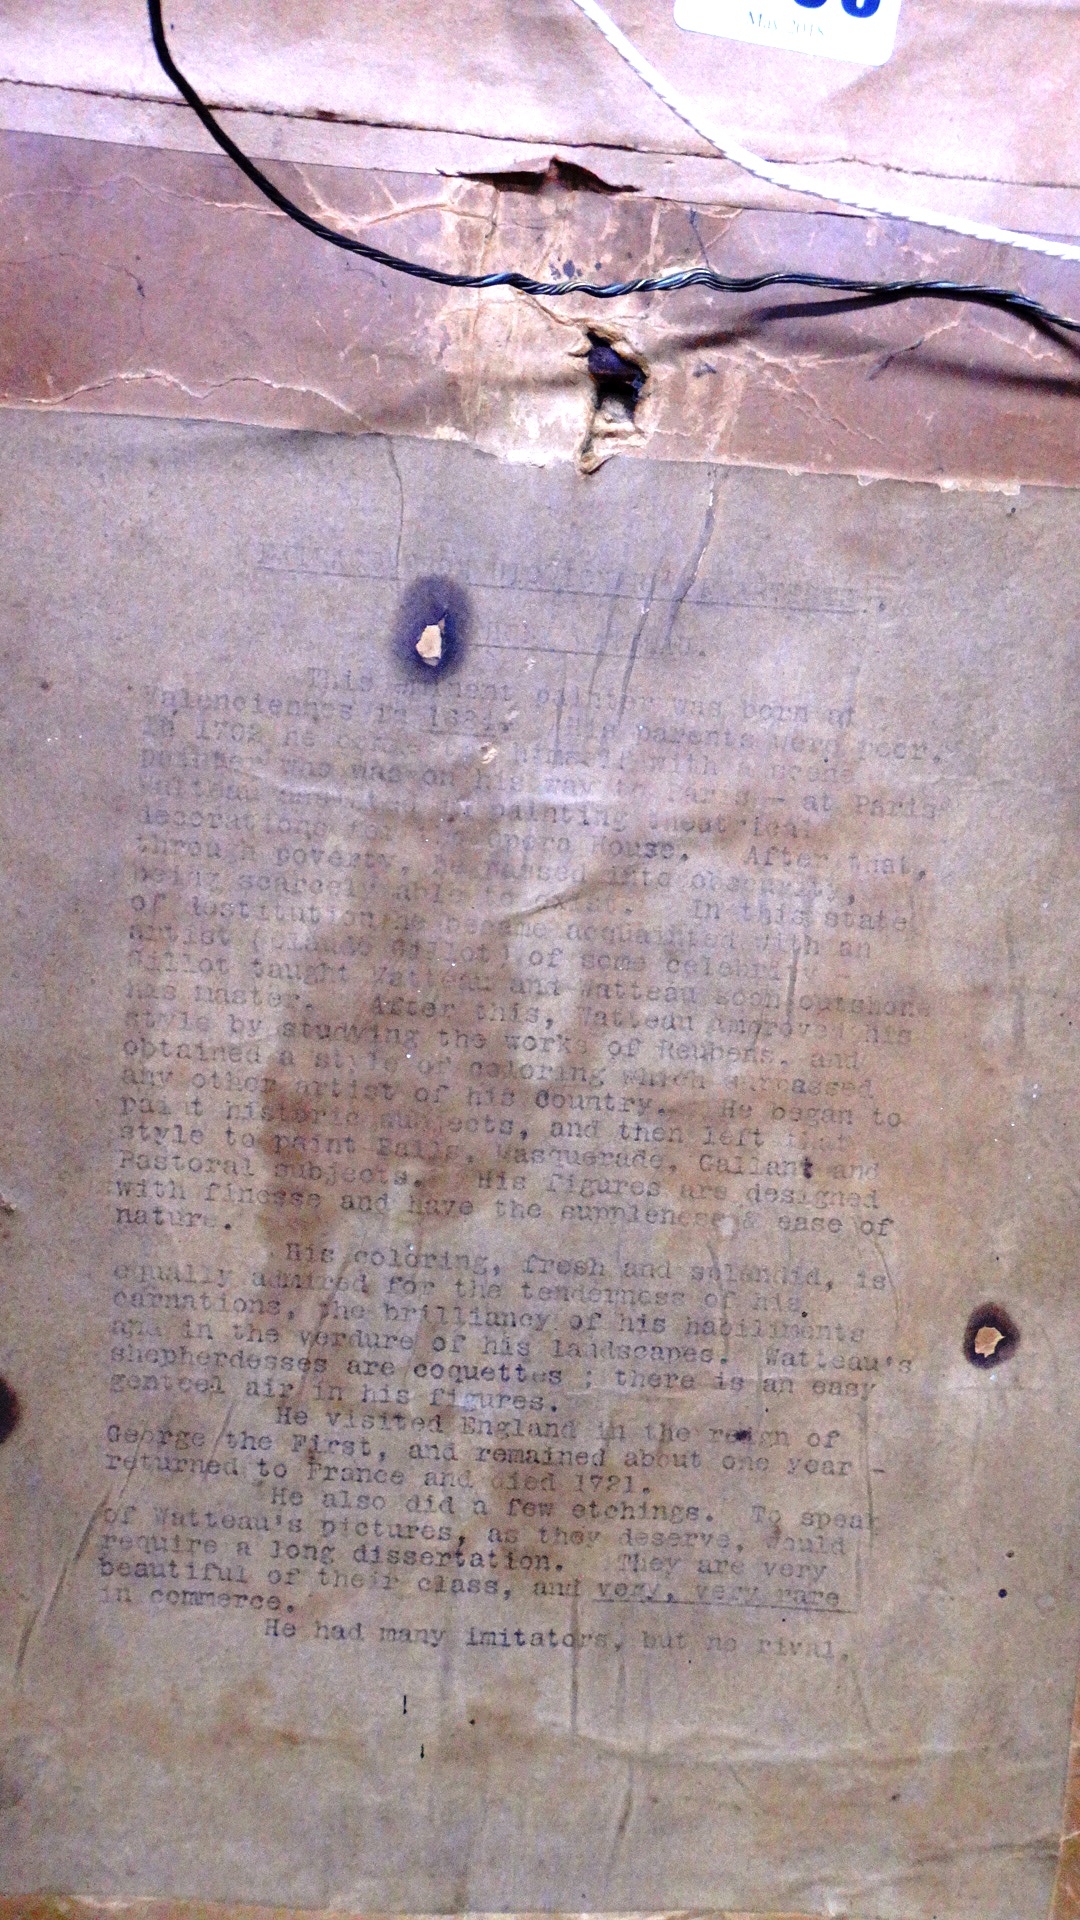 May 2018
This eminent painter was born at
Valenciennes in 1684. His parents were poor.
In 1702 he connected himself with a scene
painter who was on his way to Paris - at Paris
Watteau assisted in painting theatrical
decorations for the Opera House. After that,
through poverty, he passed into obscurity,
being scarcely able to exist. In this state
of destitution he became acquainted with an
artist (Claude Gillot) of some celebrity -
Gillot taught Watteau and Watteau soon outshone
his master. After this, Watteau improved his
style by studying the works of Reubens, and
obtained a style of coloring which surpassed
any other artist of his Country. He began to
paint historic subjects, and then left that
style to paint Balls, Masquerade, Gallant and
Pastoral subjects. His figures are designed
with finesse and have the suppleness & ease of
nature.
His coloring, fresh and splendid, is
equally admired for the tenderness of his
carnations, the brilliancy of his habiliments
and in the verdure of his landscapes. Watteau's
shepherdesses are coquettes ; there is an easy
genteel air in his figures.
He visited England in the reign of
George the First, and remained about one year -
returned to France and died 1721.
He also did a few etchings. To speak
of Watteau's pictures, as they deserve, would
require a long dissertation. They are very
beautiful of their class, and very, very rare
in commerce.
He had many imitators, but no rival.